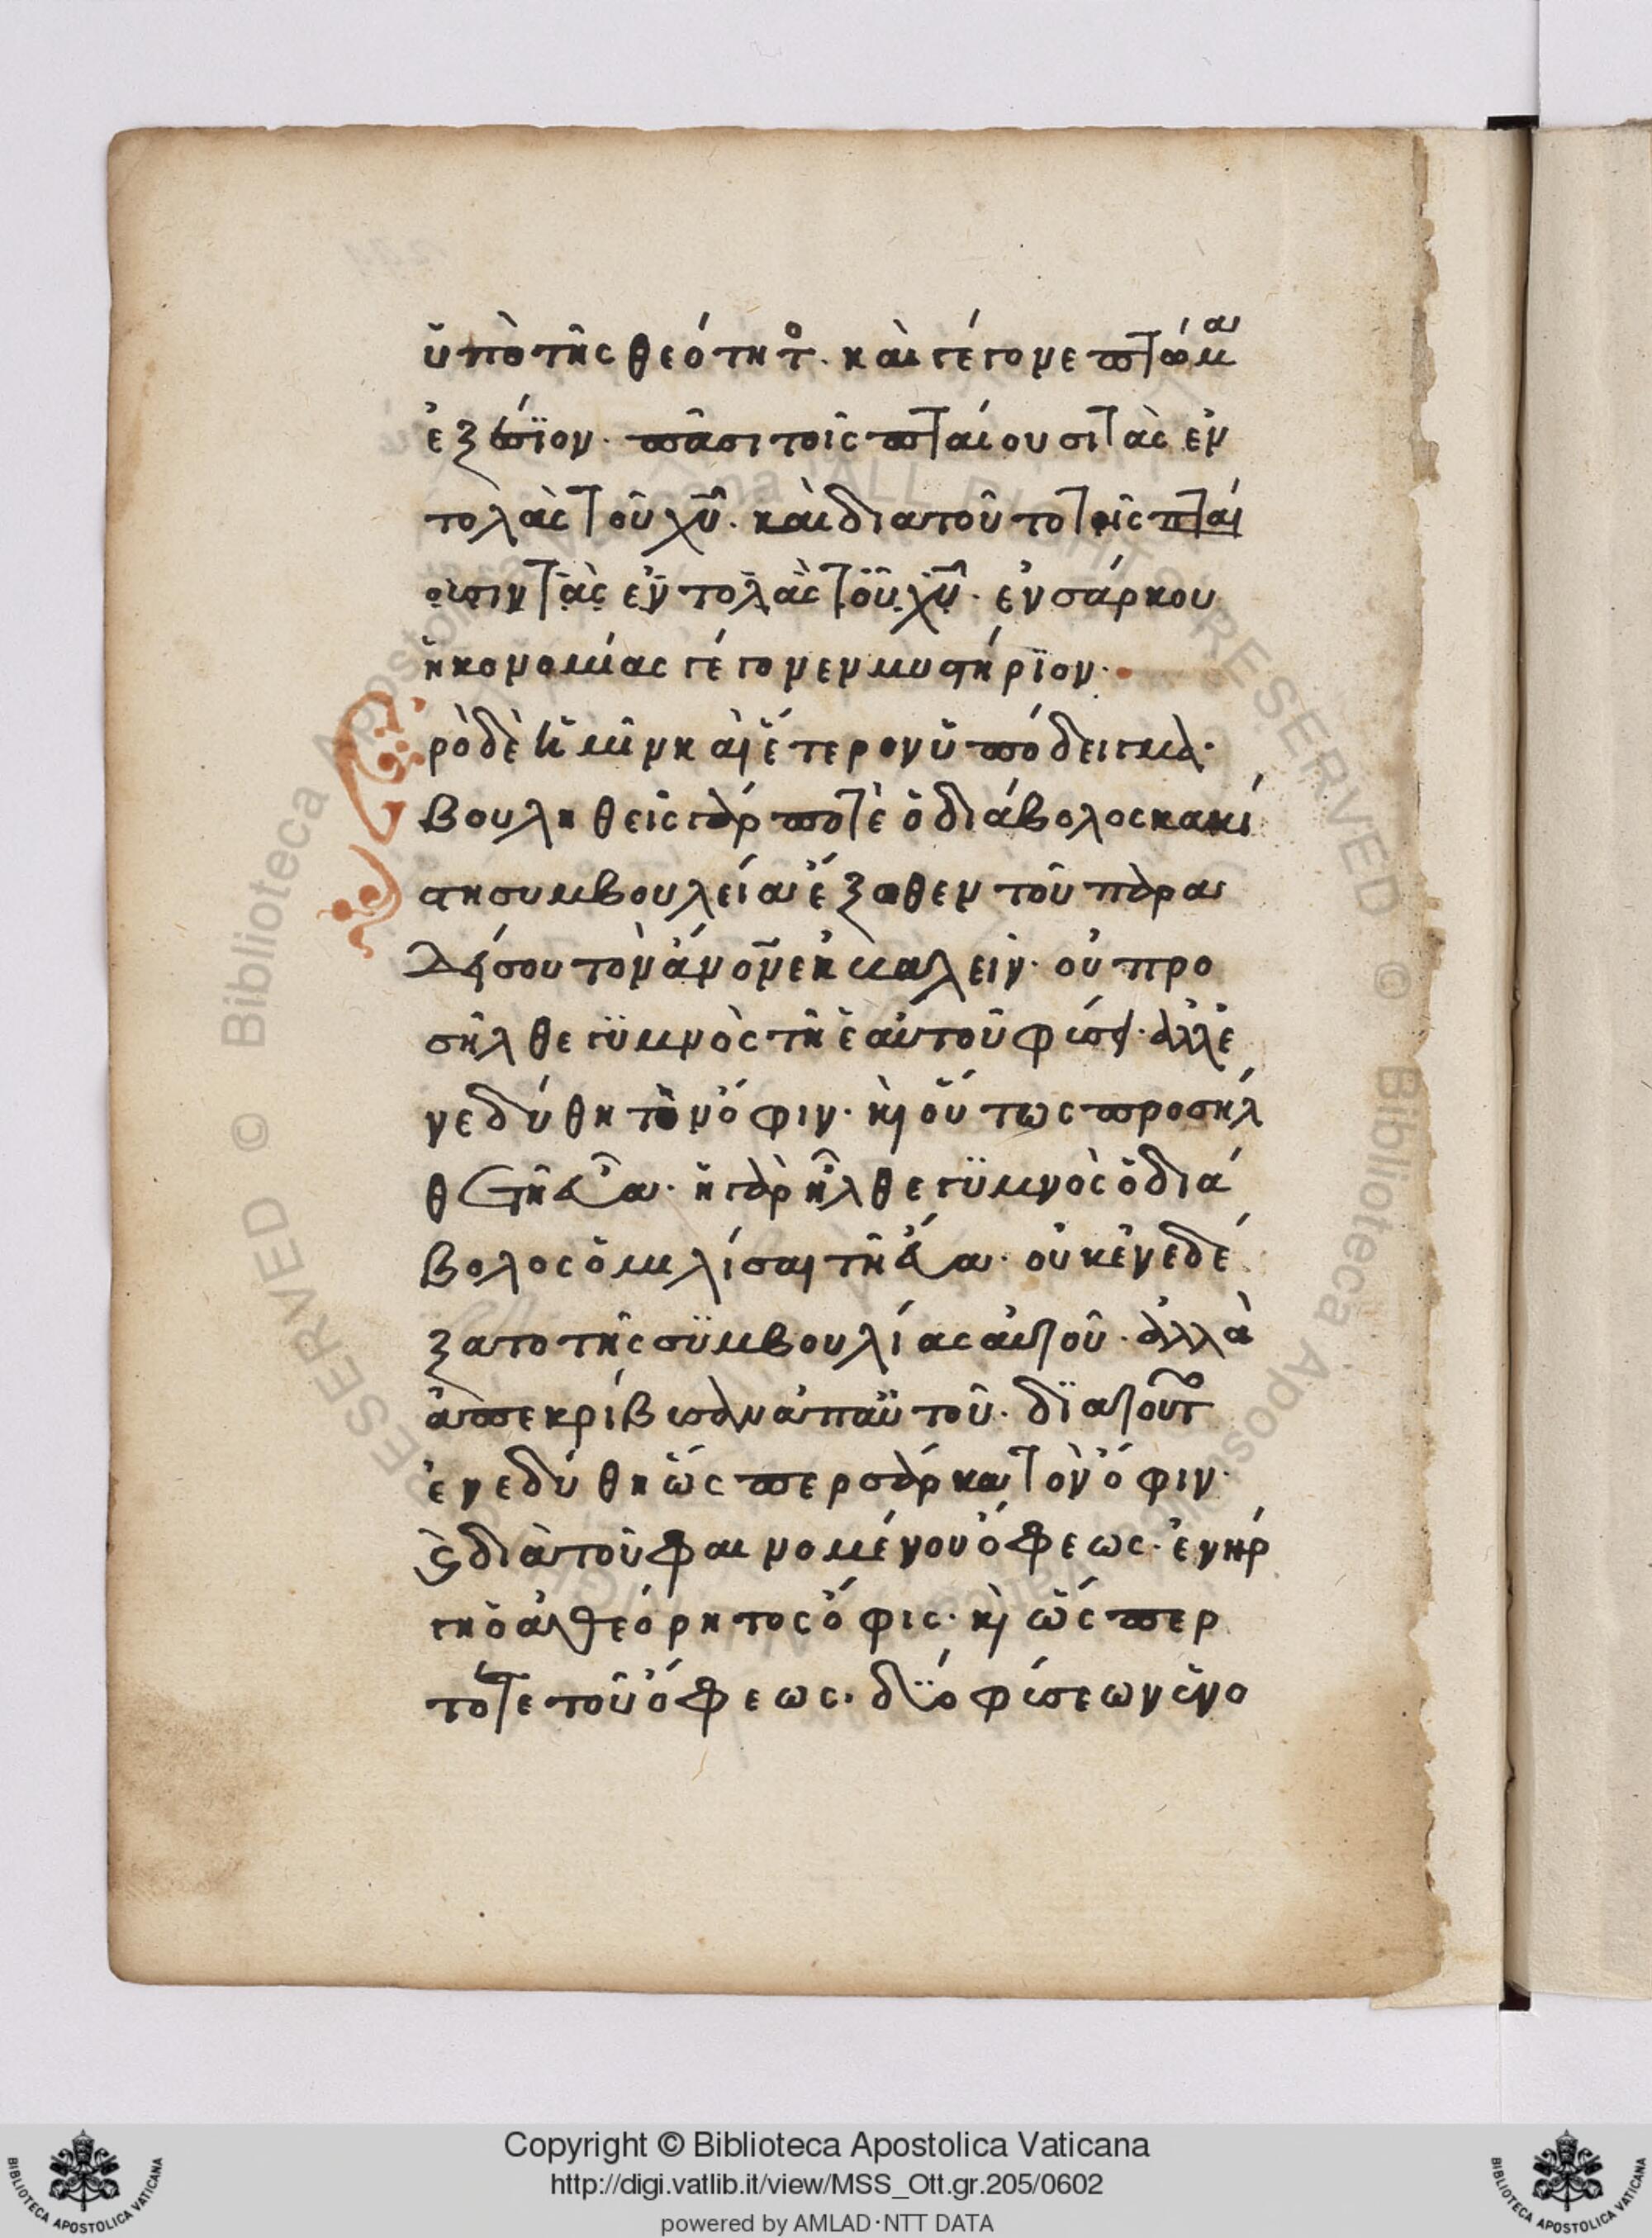 ὕπὸ τῆς θεότητ̊. καὶ γέγομε πτῶμα
ἐξώϊον. πᾶσι τοῖς πταίουσι τὰς ἐν
τολὰς τοῦ χῦ. καὶ δια τοῦτο τοῖς πταί
οισιν τὰς ἐν τολὰς τοῦ χῦ. ἐνσάρκου
ἠκονομίας γέγονεν μυστήρϊον.
ρὸ δὲ ἡμῖν καὶ ἕτερον ὕπόδειγμα.
βουληθεὶς γάρ ποτὲ ὁ διάβολος κακί
στη συμβουλεία ἔξωθεν τοῦ παρα
δείσου τὸν ἄνον ἐκβαλεῖν. οὐ προ
σῆλθε γϋμνὸς τῆ ἑαυτοῦ φύσει. ἀλλ' ἐ
νεδύθη τὸν ὄφιν. κὶ οὕτως προσῆλ
θε τῆ εὔα. ἢ γὰρ ἦλθε γϋμνὸς ὁ διά
βολος ὁμιλίσαι τῆ εὔα. οὐκ ἐνεδέ
ξατο τῆς σϋμβουλίας αὐτοῦ. ἀλλὰ
ἀπεκρίβωσαν ἀπαὐτοῦ. δϊατοῦτο
ἐνεδύθη ὥς περ σάρκα τὸν ὄφιν.
ϗ διὰ τοῦ φαινομένου ὄφεως. ἐνήρ
γη ὁ ἀθεόρητος ὄφις. κὶ ὥς περ
τότε τοῦ ὄφεως. δϋό φύσεων ἑνο
Copyright © Biblioteca Apostolica Vaticana
http://digi.vatlib.it/view/MSS_Ott.gr.205/0602
powered by AMLAD·NTT DATA